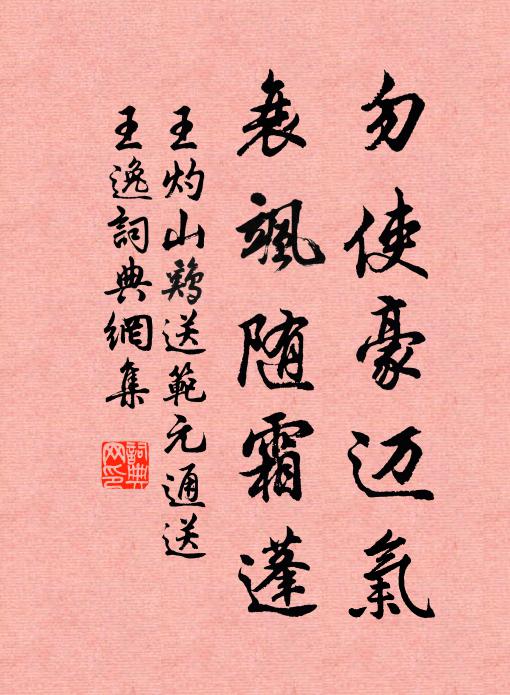 勿使豪迈氣
衰颯随霜蓬
王灼山鷄送範元通送
王逸詞典網集
詞典网印